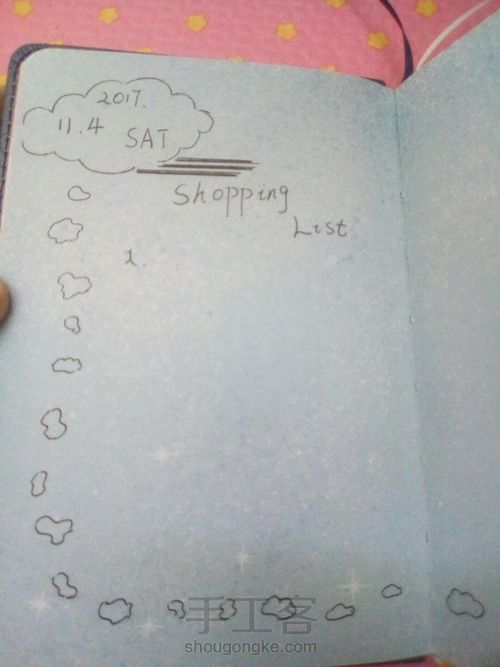 2017.
11.4 SAT
Shopping
List
1.
手工客
shougongke.com